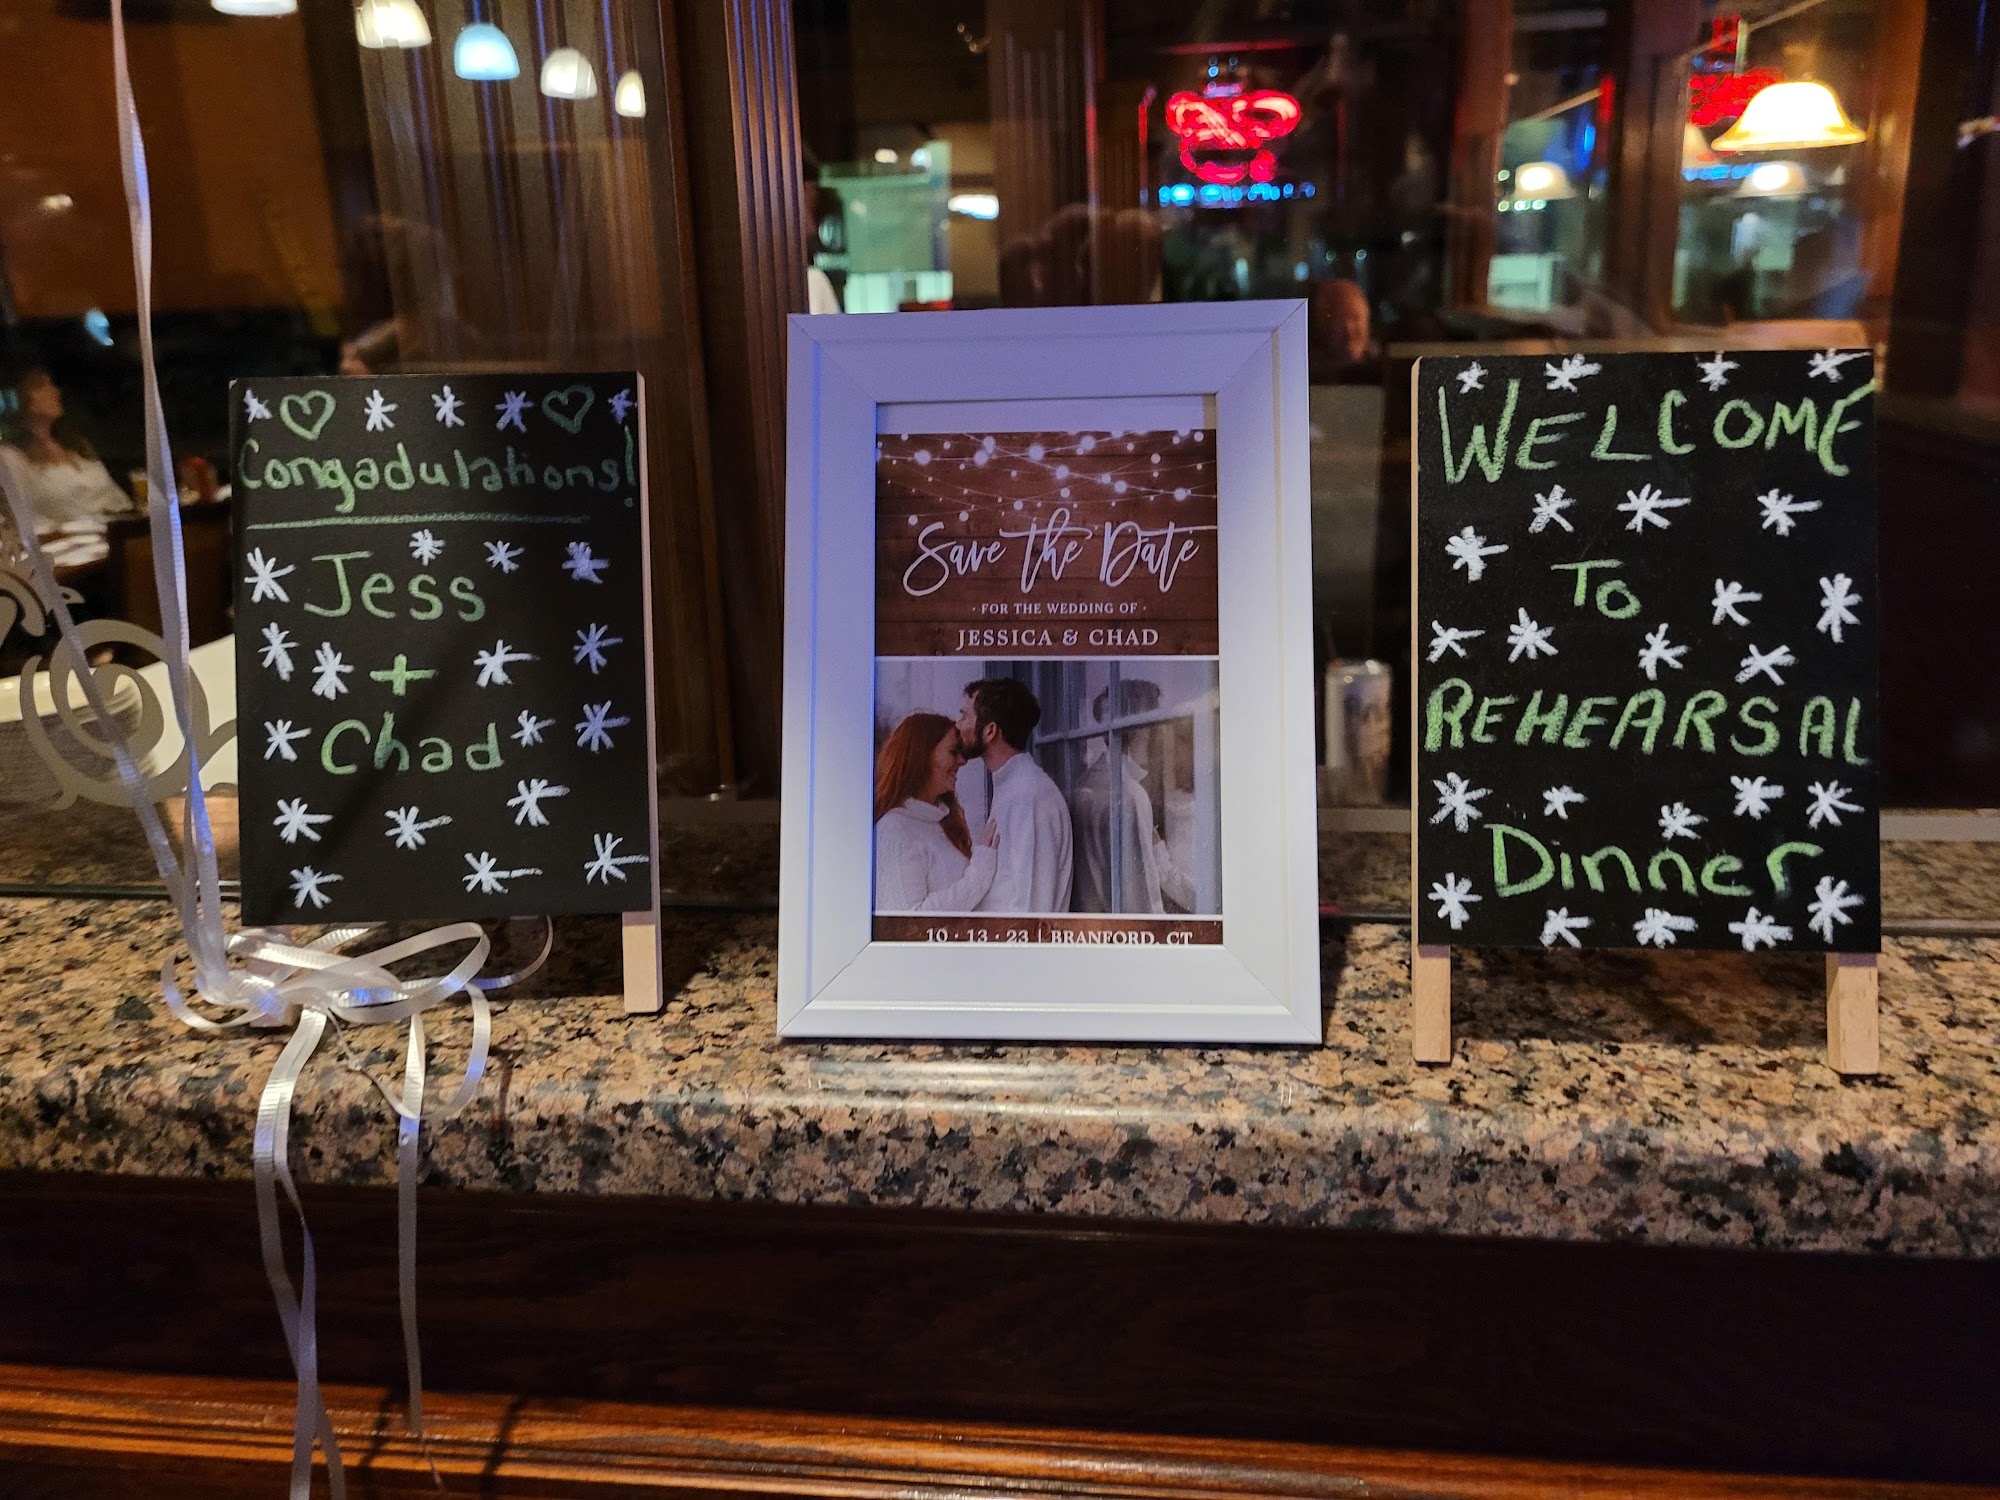 Congadulations!
Jess
+
Chad
Save the Date
· FOR THE WEDDING OF ·
JESSICA & CHAD
10 · 13 · 23 | BRANFORD, CT
WELCOME
To
REHEARSAL
Dinner